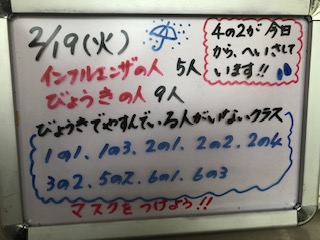 2/19(火)
4の2が今日
から、へいさして
います!!
インフルエンザの人 5人
びょうきの人 9人
びょうきでやすんでいる人がいないクラス
1の1、1の3、2の1、2の2、2の4
3の2、5の2、6の1、6の3
マスクをつけよう!!